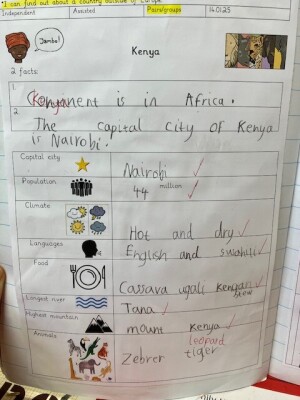 I can find out about a country outside of Europe.
Independent Assisted Pairs/groups 16.01.25
Jambo!
Kenya
2 facts:
1. Kenya
Continent is in Africa.
2. The capital city of Kenya
is Nairobi.
Capital city Nairobi
Population 44 million
Climate Hot and dry
Languages English and swahili
Food Cassava ugali kengan
bread
Longest river Tana
Highest mountain mount Kenya
leopard
Animals Zebrer tiger